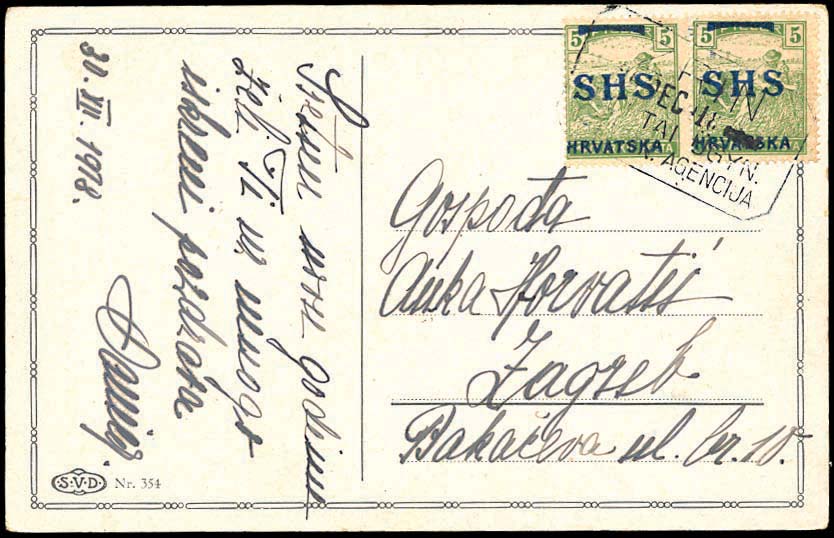 30. XII. 1918.
Sretnu novu godinu
želi Ti uz mnogo
iskreni pozdrava
5 5
SHS
HRVATSKA
5 5
SHS
HRVATSKA
DEC 18
AGENCIJA
Gospođa
Anka Horvatić
Zagreb
Bakačeva ul. br. 10.
S.V.D. Nr. 354